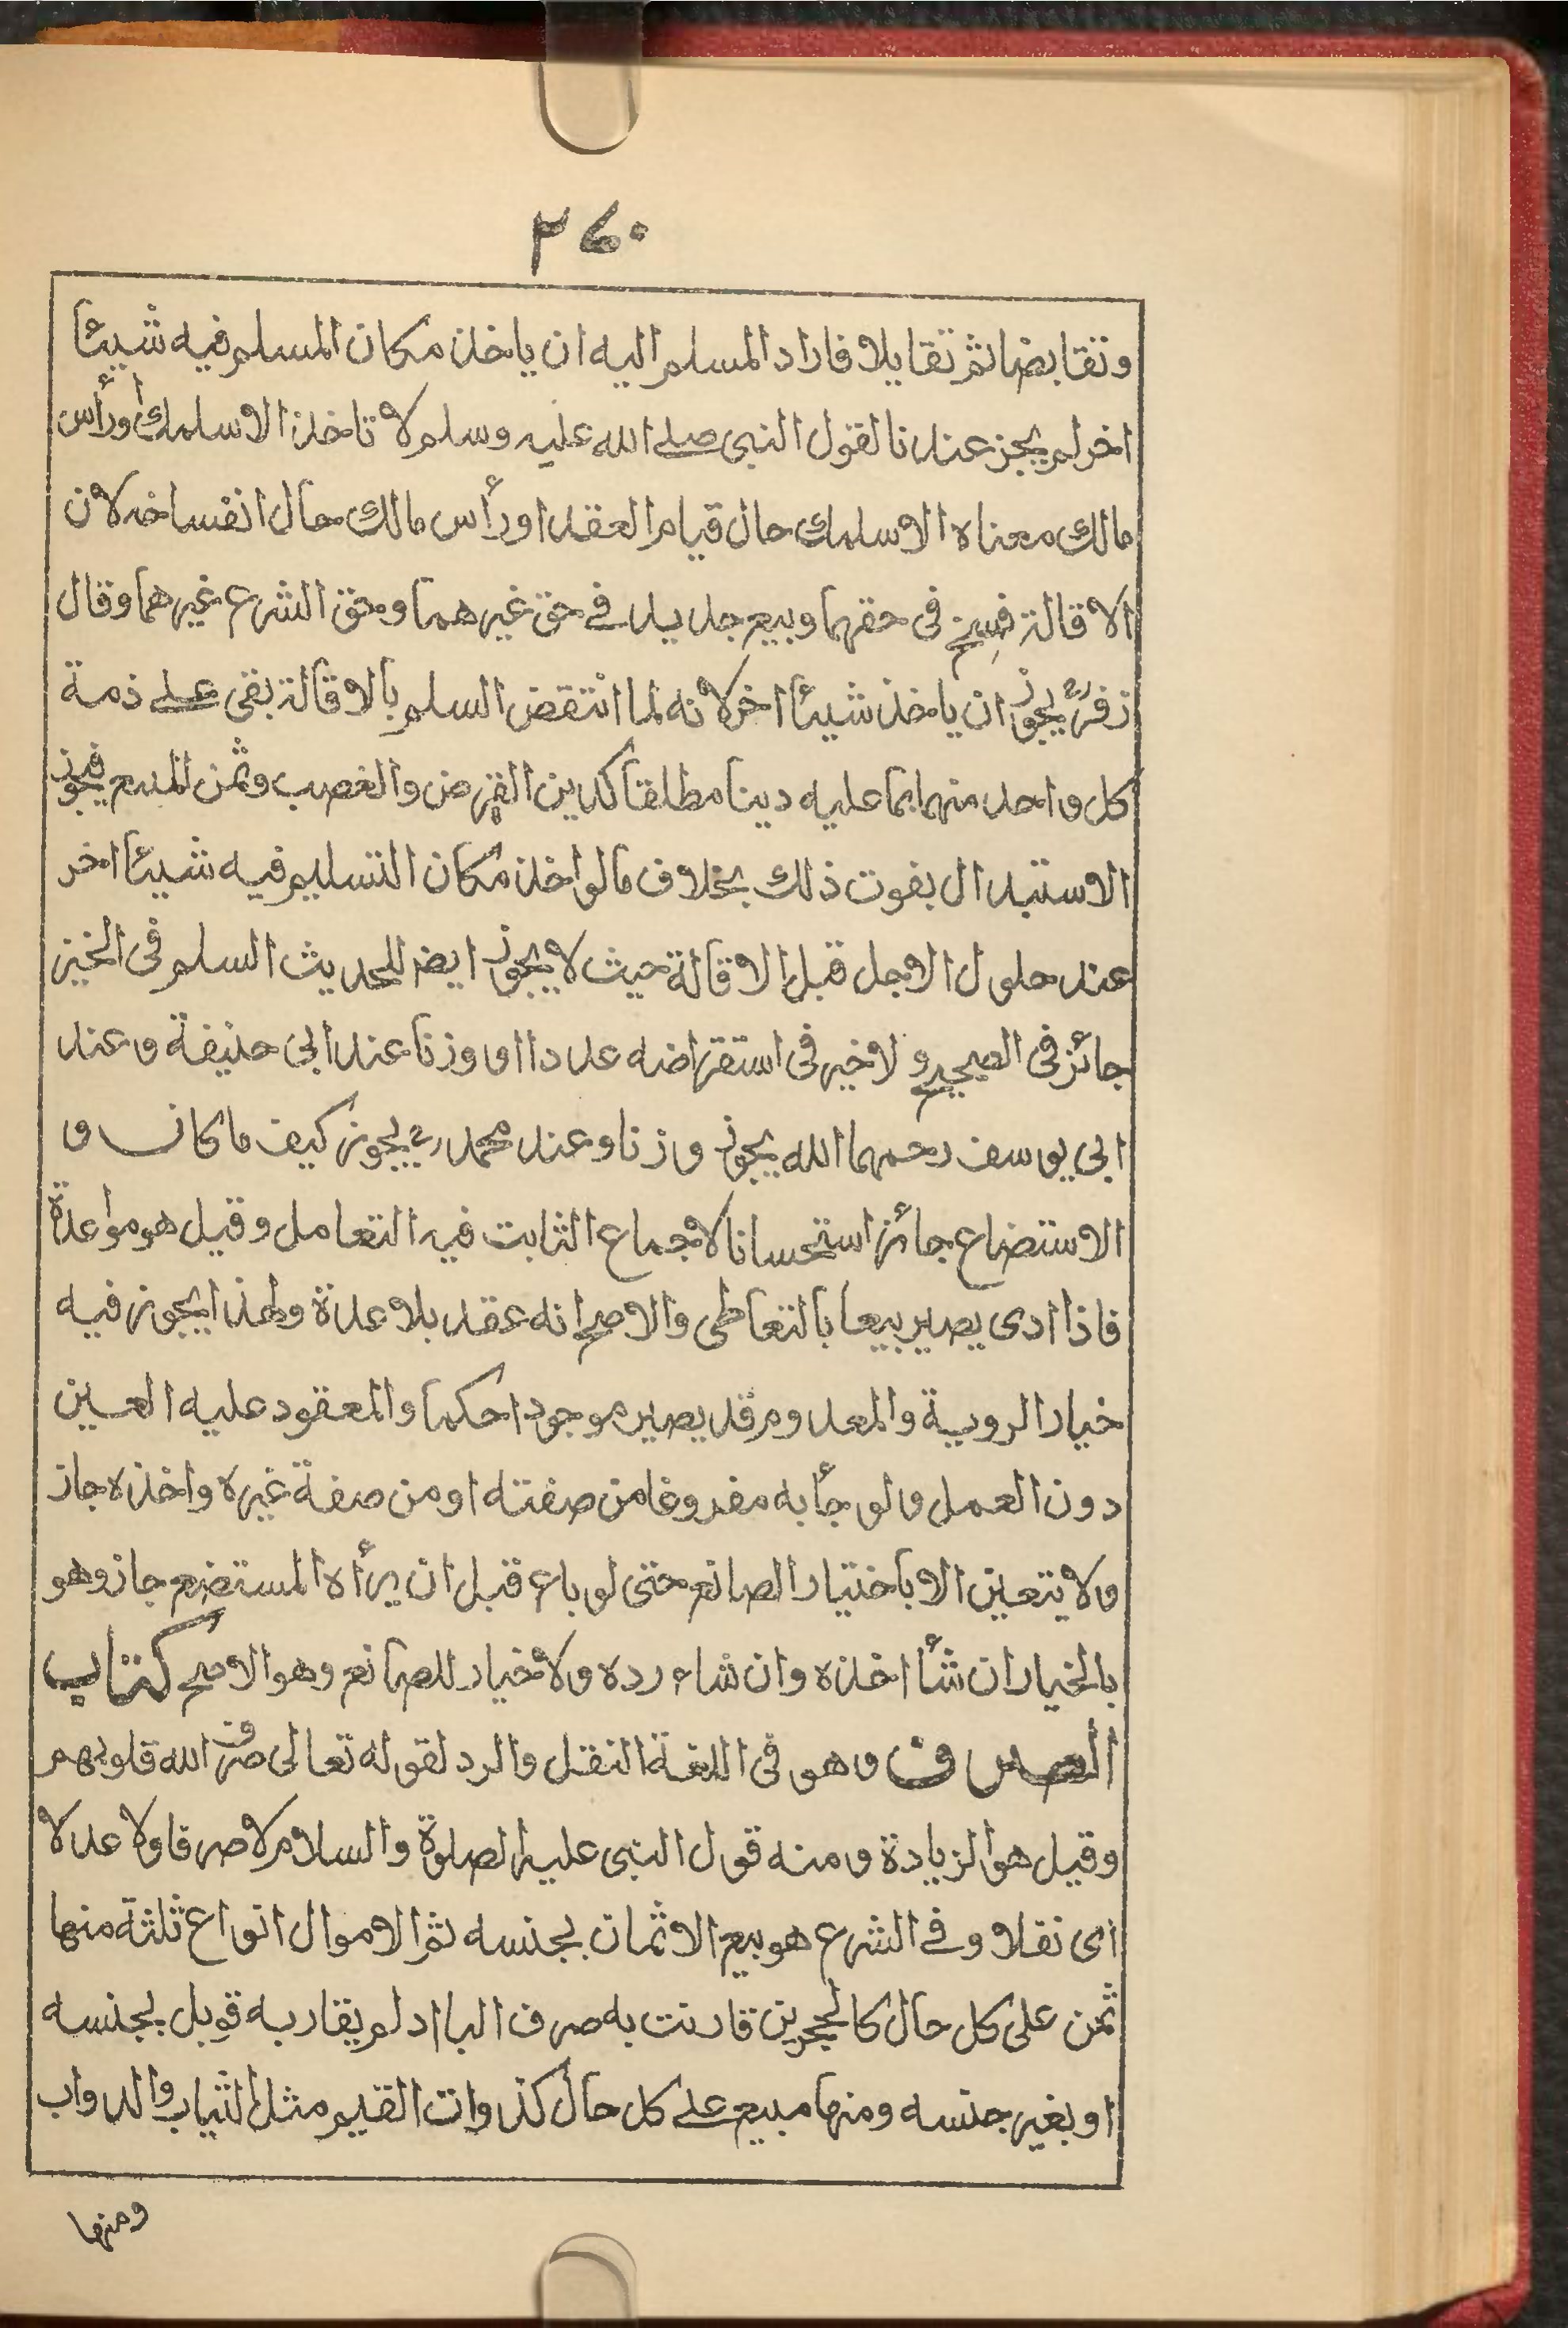 ٣٤٠
وتقابضا ثم تقايلا فاراد المسلم اليه ان ياخذ مكان المسلم فيه شيئاً
اخر لم يجز عندنا لقول النبى صلے الله عليه وسلم لا تاخذ الا سلمك أو رأس
مالك معناه الا سلمك حال قيام العقد او رأس مالك حال انفساخه لان
الاقالة فسخ فى حقهما وبيع جديد فے حق غيرهما وحق الشرع غيرهما وقال
زفرؒ يجوز ان ياخذ شيئاً اخر لانه لما انتقض السلم بالاقالة بقى علے ذمة
كل واحد منهما بما عليه دينا مطلقا كدين القرض والغصب وثمن المبيع فيجوز
الاستبدال بفوت ذلك بخلاف مالو اخذ مكان التسليم فيه شيئا اخر
عند حلول الاجل قبل الاقالة حيث لا يجوز ايضا للحديث السلم فى الخبز
جائز فى الصحيح ولا خير فى استقراضه عددا او وزنا عند ابى حنيفة وعند
ابى يوسف رحمهما الله يجوز وزنا وعند محمد رح يجوز كيف ما كان و
الاستضاع جائز استحسانا لاجماع الثابت فيه التعامل وقيل هو مواعدة
فاذا ادى يصير بيعا بالتعاطى والاصح انه عقد بلا عدة ولهذا يجوز فيه
خيار الروية والمعدوم قد يصير موجودا حكما والمعقود عليه العين
دون العمل ولو جأ به مفروغا من صفته او من صفة غيره واخذه جاز
ولا يتعين الا باختيار الصانع حتى لو باع قبل ان يرأه المستضع جاز وهو
بالخيار ان شأ اخذه وان شاء رده ولا خيار للصانع وهو الاصح كتاب
الصرف وهو فى اللغة النقل والرد لقوله تعالى صرف الله قلوبهم
وقيل هو الزيادة ومنه قول النبى عليه الصلوة والسلام لا صرفا ولا عدلا
اى نفلا وفے الشرع هو بيع الاثمان بجنسه ثم الاموال انواع ثلثة منها
ثمن على كل حال كالحجرين قارنت به صرف البا اد لم يقاربه قوبل بجنسه
او بغير جنسه ومنها مبيع علے كل حال كذوات القيم مثل الثياب والدواب
ومنها